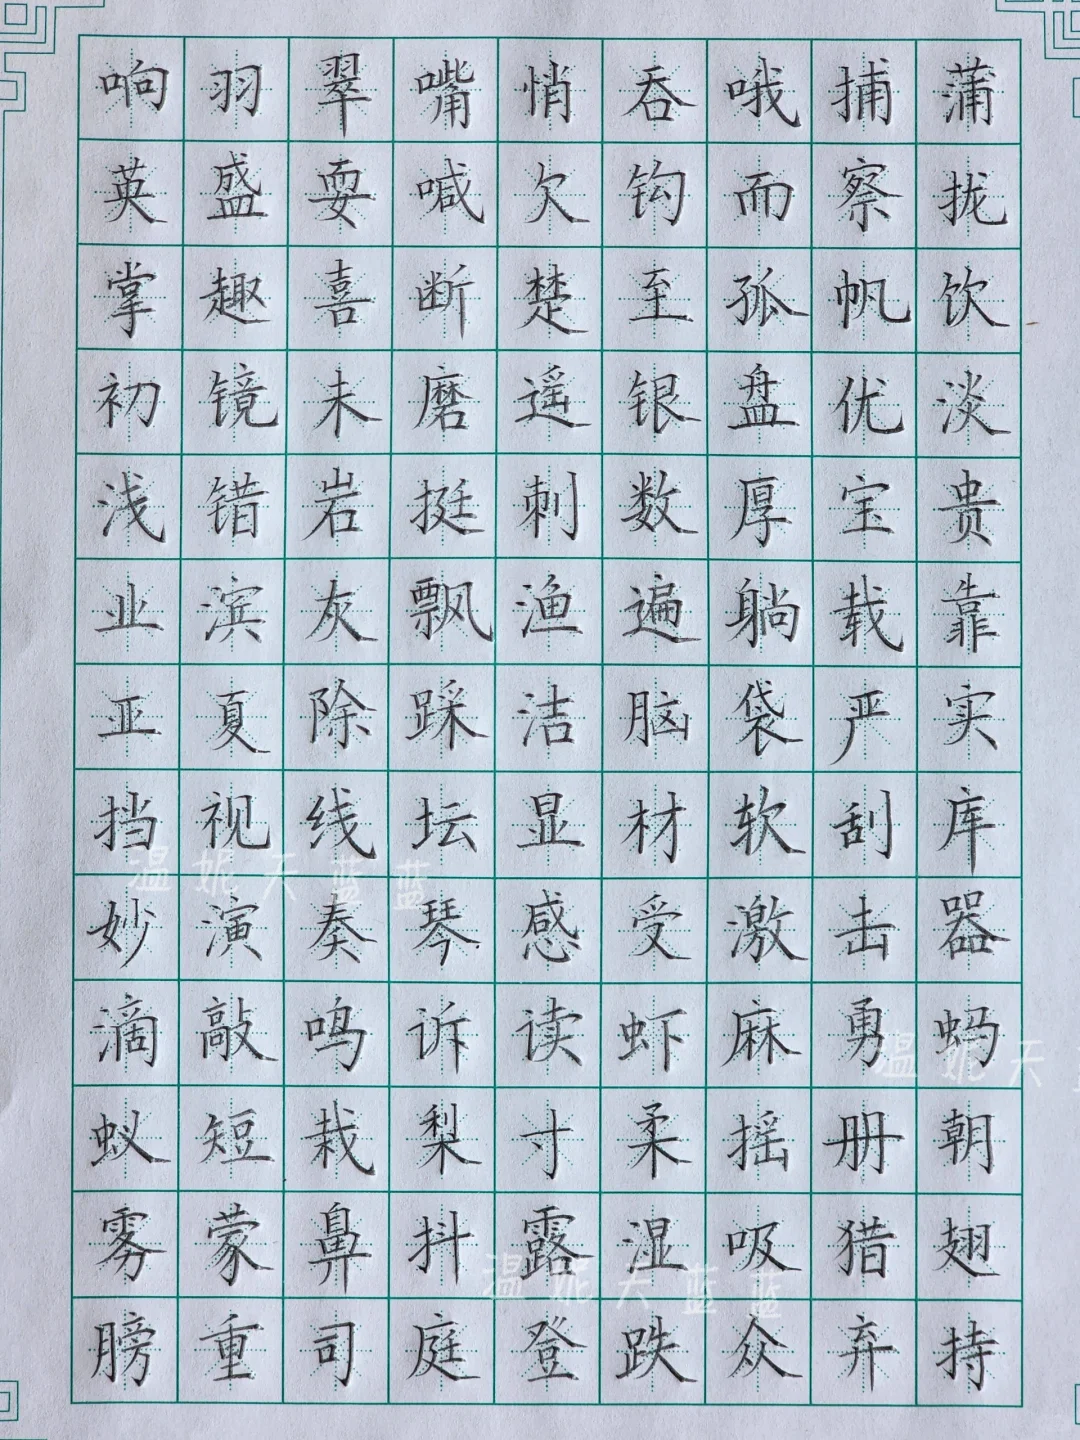 响羽翠嘴悄吞哦捕蒲
英盛耍喊欠钩而察拢
掌趣喜断楚至孤帆饮
初镜未磨遥银盘优淡
浅错岩挺刺数厚宝贵
业滨灰飘渔遍躺载靠
亚夏除踩洁脑袋严实
挡视线坛显材软刮库
温妮天蓝蓝
妙演奏琴感受激击器
滴敲鸣诉读虾麻勇蚂
温妮天蓝
蚁短栽梨寸柔摇册朝
雾蒙鼻抖露湿吸猎翅
温妮天蓝蓝
膀重司庭登跌众弃持